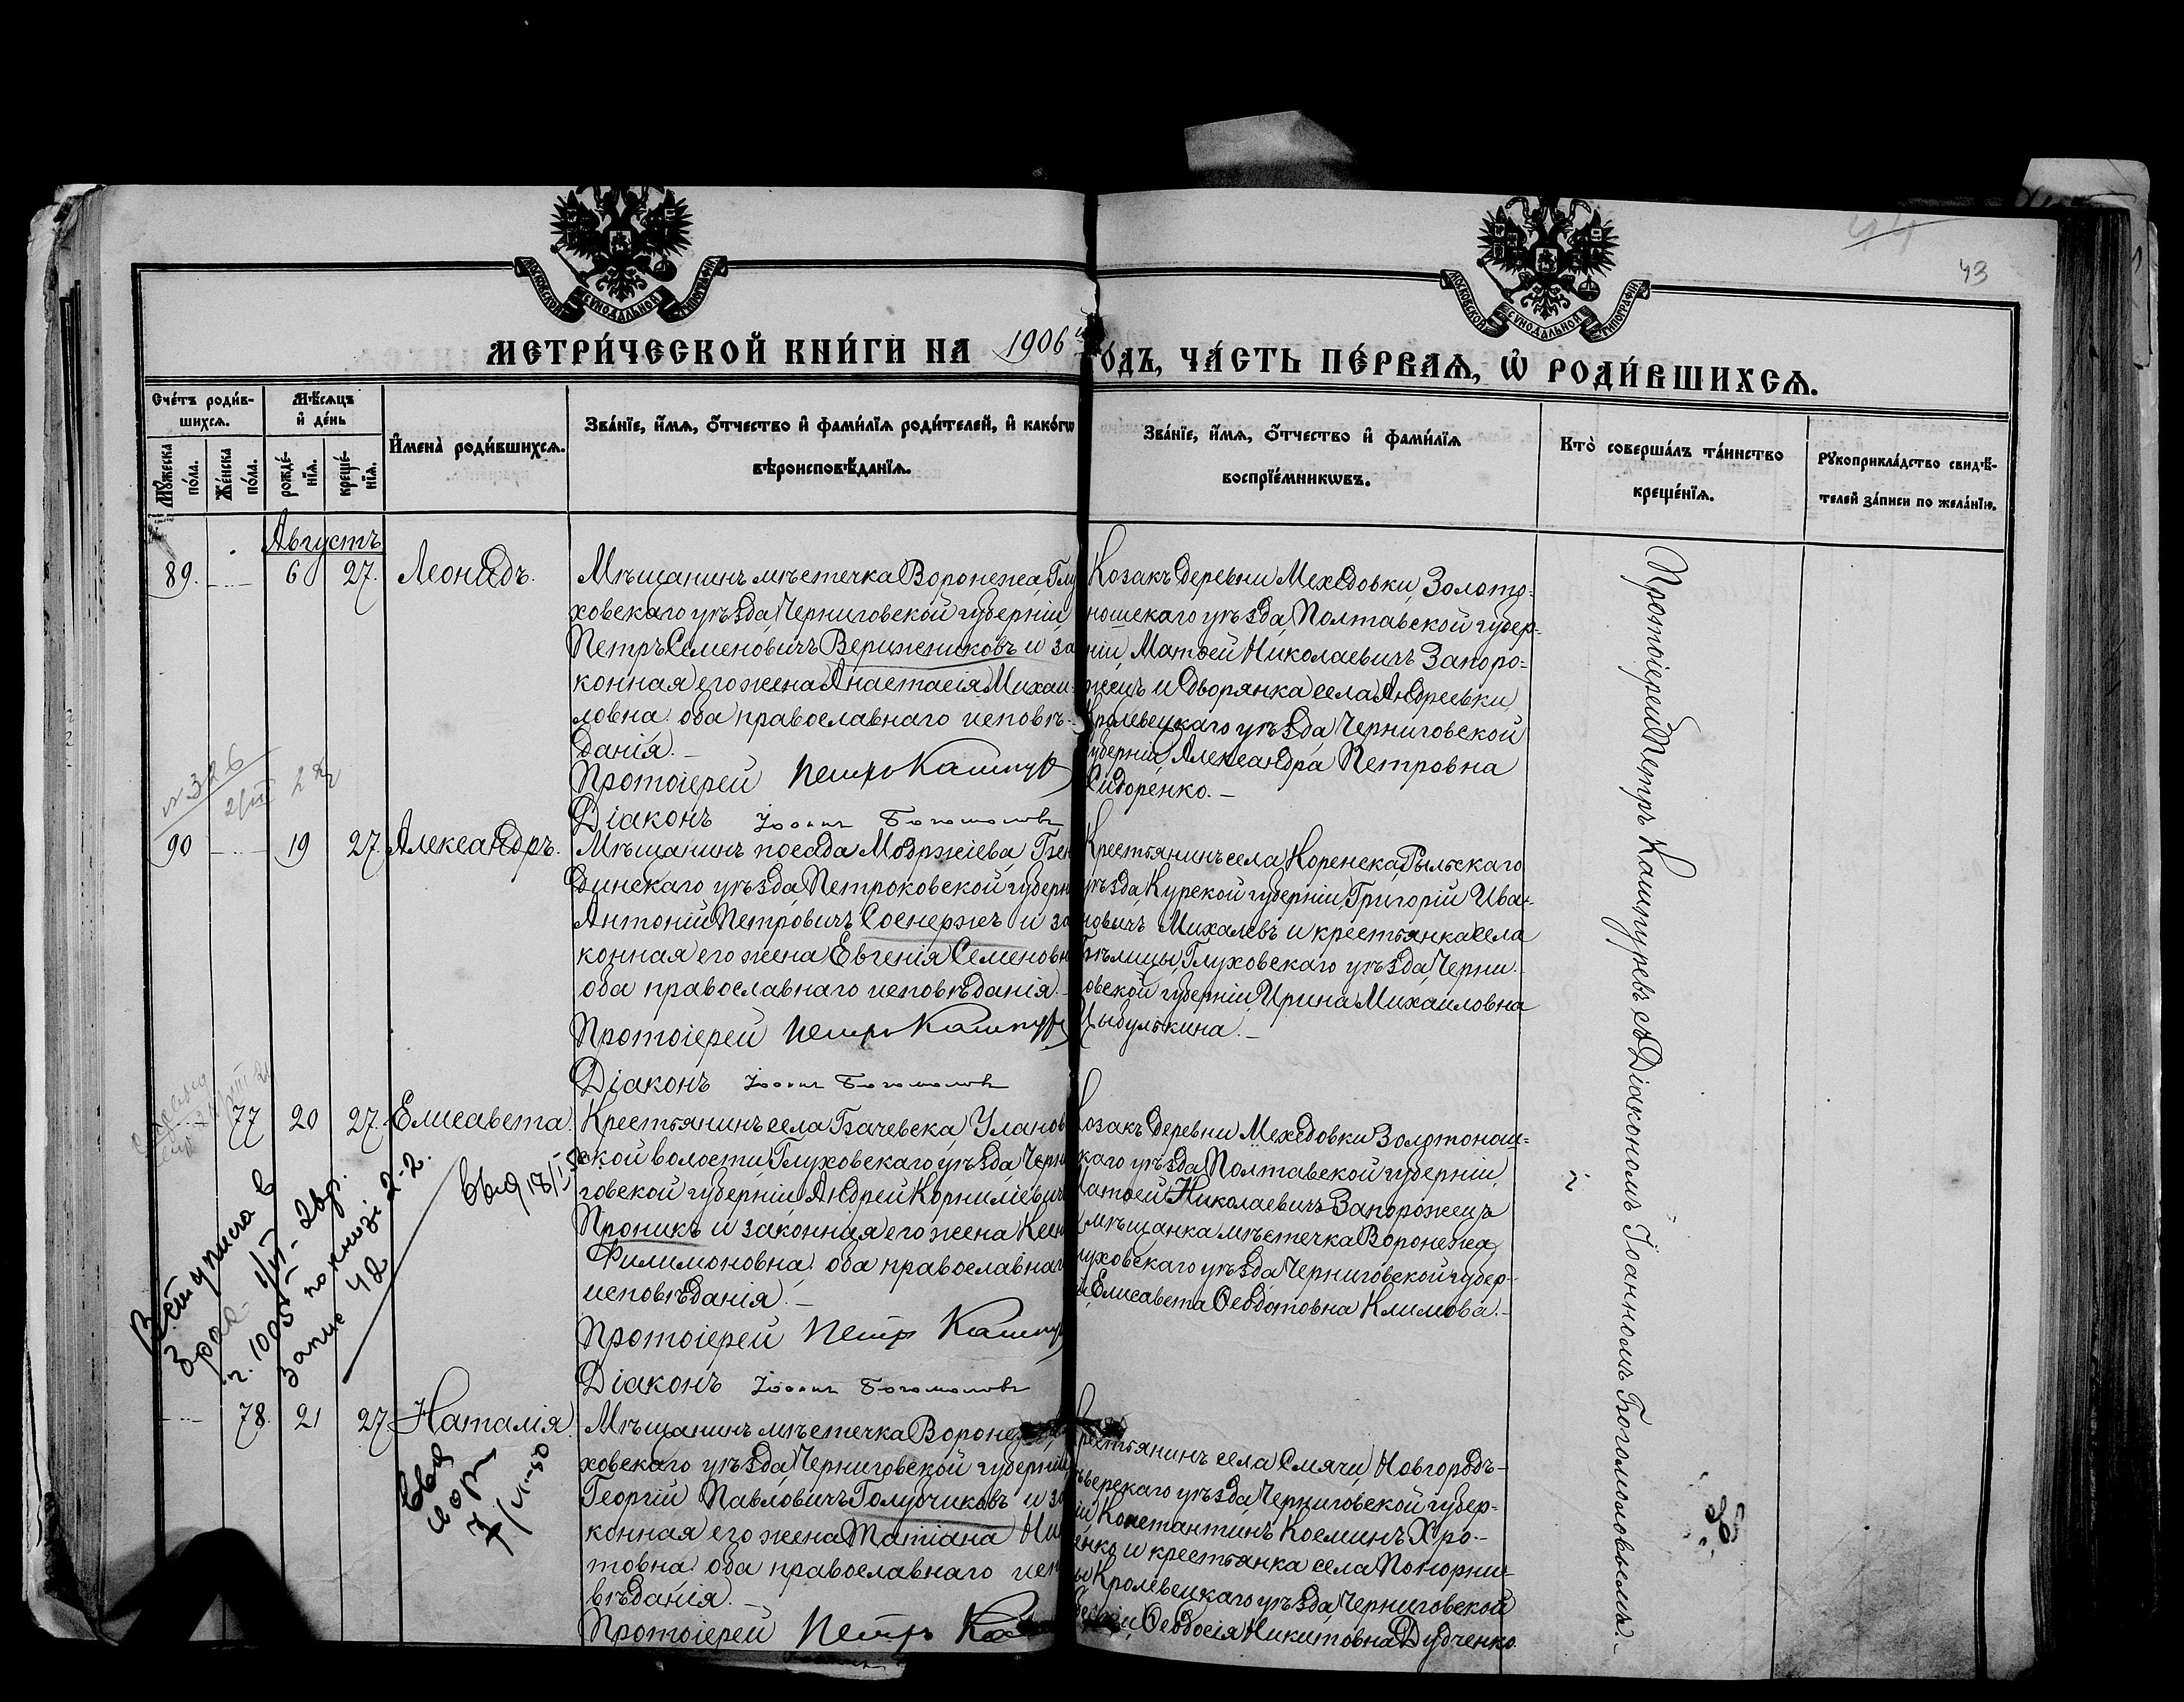 44
43
МОСКОВСКОЙ СѴНОДАЛЬНОЙ ТИПОГРАФІИ
МОСКОВСКОЙ СѴНОДАЛЬНОЙ ТИПОГРАФІИ
МЕТРИ́ЧЕСКОЙ КНИ́ГИ НА 1906
О́ДЪ, ЧА́СТЬ ПЕ́РВАѦ, Ѡ҆ РОДИ́ВШИХСѦ.
Сче́тъ роди́в-
шихсѧ.
Мѣ́сѧцъ
и҆ де́нь
Мꙋ́жеска по́ла.
Же́нска по́ла.
рожде́-нїѧ.
креще́-нїѧ.
И҆мена̀ роди́вшихсѧ.
Зва́нїе, и҆́мѧ, ѻ҆́тчество и҆ фами́лїѧ роди́телей, и҆ како́гѡ
вѣроисповѣ́данїѧ.
Зва́нїе, и҆́мѧ, ѻ҆́тчество и҆ фами́лїѧ
воспрїе́мникѡвъ.
Кто̀ соверша́лъ та́инство
креще́нїѧ.
Рꙋкоприкла́дство свидѣ́-
телей за́писи по жела́нїю.
Августъ
89. 6 27. Леонидъ.
Мѣщанинъ мѣстечка Воронежа, Глу
ховскаго уѣзда, Черниговской губерніи
Петръ Семеновичъ Вериженковъ и за
конная его жена Анастасія Михаи-
ловна: оба православнаго исповѣ-
данія. —
Протоіерей Петръ Кашпур
Діаконъ Іоаннъ Богомоловъ
Козакъ деревни Мехедовки, Золото-
ношскаго уѣзда, Полтавской губер-
ніи, Матѳей Николаевичъ Запоро-
жецъ и дворянка села Андреевки,
Кролевецкаго уѣзда, Черниговской
губерніи, Александра Петровна
Сидоренко. —
№326
90 19 27. Александръ.
Мѣщанинъ посада Модржіева, Бен
динскаго уѣзда, Петроковской губерн
Антоній Петровичъ Соснержъ и за
конная его жена Евгенія Семеновн
оба православнаго исповѣданія. —
Протоіерей Петръ Кашпур
Діаконъ Іоаннъ Богомоловъ
Крестьянинъ села Коренска, Рыльскаго
уѣзда, Курской губерніи, Григорій Ива-
новичъ Михалевъ и крестьянка села
Бѣлицы, Глуховскаго уѣзда, Черни-
овской губерніи, Ирина Михаиловна
Цыбулькина. —
77 20 27. Елисавета.
Крестьянинъ села Бачевска, Уланов
ской волости, Глуховскаго уѣзда, Черни
говской губерніи, Андрей Корниліевич
Проникъ и законная его жена Ксен
Филимоновна: оба православнаг
исповѣданія. —
Протоіерей Петръ Кашпу
Діаконъ Іоаннъ Богомоловъ
Козакъ деревни Мехедовки, Золотонош-
скаго уѣзда, Полтавской губерніи,
Матѳей Николаевичъ Запорожецъ
и мѣщанка мѣстечка Воронежа,
луховскаго уѣзда, Черниговской губер-
іи, Елисавета Ѳеодотовна Климова. —
ч. 1005 по книзі 2-2.
запис 42
78. 21 27 Наталія.
7/VI-50
Мѣщанинъ мѣстечка Воронежа,
ховскаго уѣзда, Черниговской губерніи
Георгій Павловичъ Голубчиковъ и за
конная его жена Татіана Ники
товна: оба православнаго испо
вѣданія. —
Протоіерей Петръ Ка
Крестьянинъ села Смячи, Новгородъ-
сѣверскаго уѣзда, Черниговской губер-
ніи Константинъ Косминъ Хро-
енко и крестьянка села Понорни-
цы Кролевецкаго уѣзда, Черниговской
губерніи, Ѳеодосія Никитовна Дудченко.
Протоіерей Петръ Кашпуревъ съ Діакономъ Іоанномъ Богомоловымъ. —